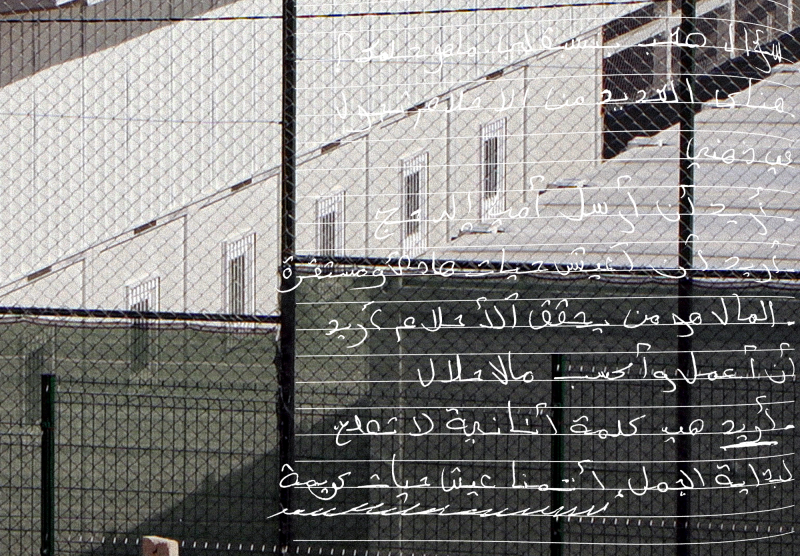 سؤال هب مستقبلي ماهو حلمك؟
هناك العديد من الأحلام تتجول
في ذهني
. أريد أن أرسل أمي إلى الحج
. أريد أن أعيش حيات هادئة ومستقرة
. المال هو من يحقق الأحلام أريد
أن أعمل وأكسب مالا حلال
. أريد هب كلمة أنانية لا تصلح
لبداية الجمل، أتمنا عيش حيات كريمة